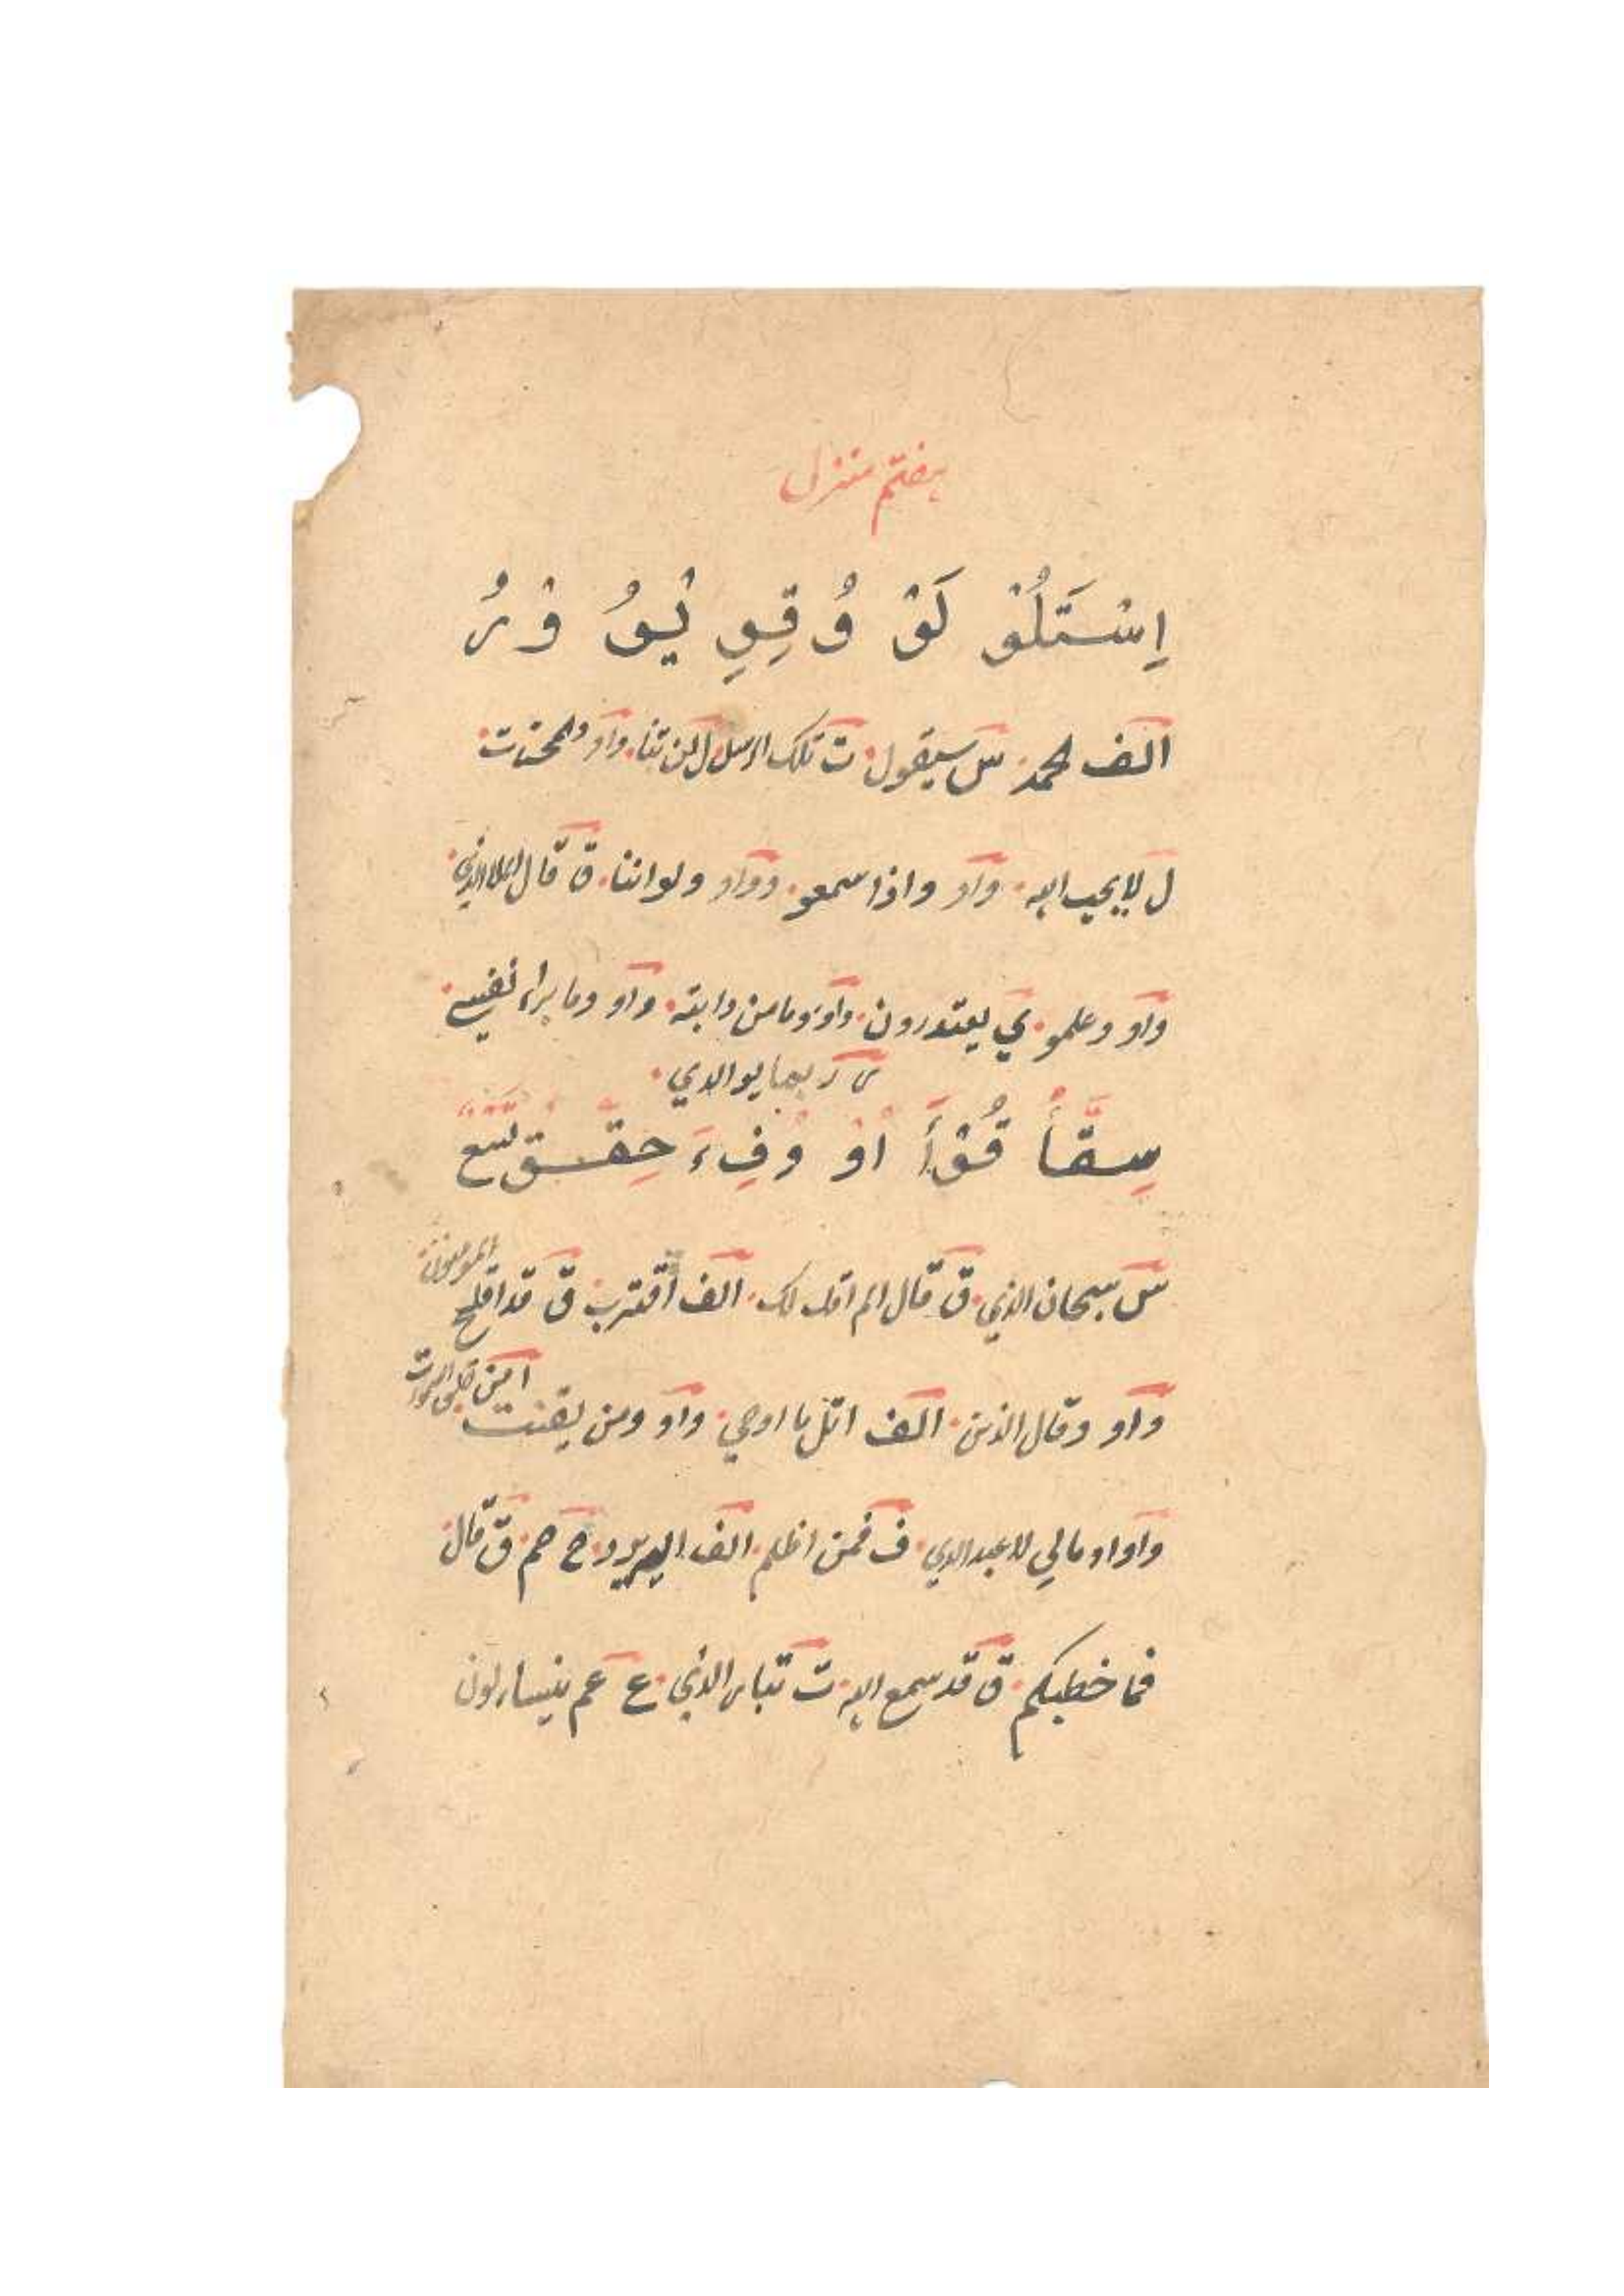 ہفتم منزل
اِسْتَلُوْ لَوْ وُ قِوِ يُوُ وْ رُ
الف الحمد س سیقول ت تلک الرسل ل لن تنا واو والمحصنت
ل لا یحب الله واو واذا سمعو و واو ولواننا ق قال الملا الذی
واو وعلمو ي یعتذرون واو وما من دابته واو وما براء نفسی
ر ربما یوالذي
سِقَّأُ قُوْأَ اَوْ وُفِءَ حِقَقْ تَّبَعَ
س سبحان الذي ق قال الم اقل لک الف اقترب ق قد افلح
المومنون
واو وقال الذین الف اتل ما اوحي واو ومن یقنت
واو او مالي لا عبد الذي ف فمن اظلم الف الیه یرد ح حم ق قال
فما خطبکم ق قد سمع الله ت تبارک الذي ع عم یتساءلون